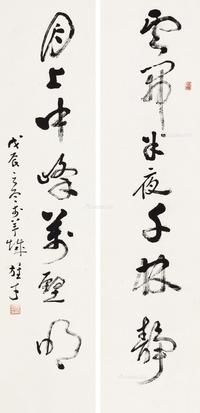 雲開半夜千林靜
月上中峰萬壑明
戊辰之冬於羊城